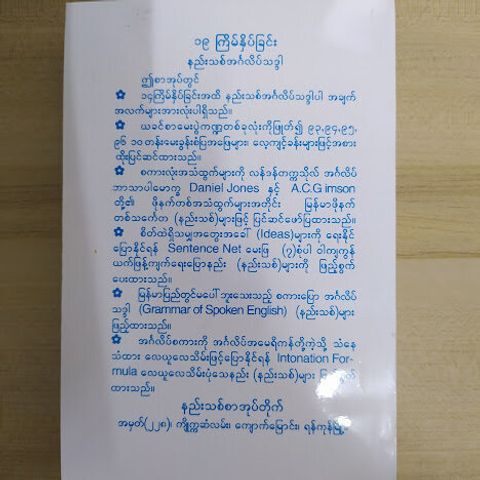 ၁၉ ကြိမ်နှိပ်ခြင်း
နည်းသစ်အင်္ဂလိပ်သဒ္ဒါ
ဤစာအုပ်တွင်
၁၄ကြိမ်နှိပ်ခြင်းအထိ နည်းသစ်အင်္ဂလိပ်သဒ္ဒါပါ အချက်
အလက်များအားလုံးပါရှိသည်။
ယခင်စာမေးပွဲကဏ္ဍတစ်ခုလုံးကိုဖြုတ်၍ ၉၃,၉၄,၉၅,
၉၆ ၁၀တန်းမေးခွန်းစံပြအဖြေများ၊ လေ့ကျင့်ခန်းများဖြင့်အစား
ထိုးပြင်ဆင်ထားသည်။
စကားလုံးအသံထွက်များကို လန်ဒန်တက္ကသိုလ် အင်္ဂလိပ်
ဘာသာပါမောက္ခ Daniel Jones နှင့် A.C.G imson
တို့၏ ဖိုနက်တစ်အသံထွက်များအတိုင်း မြန်မာဖိုနက်
တစ်သင်္ကေတ (နည်းသစ်)များဖြင့် ပြင်ဆင်ဖော်ပြထားသည်။
စိတ်ထဲရှိသမျှအတွေးအခေါ် (Ideas)များကို ရေးနိုင်
ပြောနိုင်ရန် Sentence Net မေးဖြ (၇)စုံပါ ဝါကျကွန်
ယက်ဖြန့်ကျက်ရေးပြောနည်း (နည်းသစ်)များကို ဖြည့်စွက်
ပေးထားသည်။
မြန်မာပြည်တွင်မပေါ်ဘူးသေးသည့် စကားပြော အင်္ဂလိပ်
သဒ္ဒါ (Grammar of Spoken English) (နည်းသစ်)များ
ဖြည့်ထားသည်။
အင်္ဂလိပ်စကားကို အင်္ဂလိပ်အမေရိကန်တို့ကဲ့သို့ သံနေ
သံထား လေယူလေသိမ်းဖြင့်ပြောနိုင်ရန် Intonation For-
mula လေယူလေသိမ်းပုံသေနည်း (နည်းသစ်)များ ဖြည့်စွက်
ထားသည်။
နည်းသစ်စာအုပ်တိုက်
အမှတ်(၂၂၈)၊ ကျိုက္ကဆံလမ်း၊ ကျောက်မြောင်း၊ ရန်ကုန်မြို့